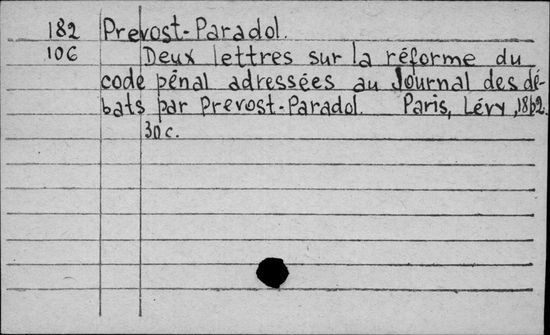 182 Prevost-Paradol.
106 Deux lettres sur la réforme du
code pénal adressées au Journal des dé-
bats par Prevost-Paradol. Paris, Lévy, 1862.
30 c.